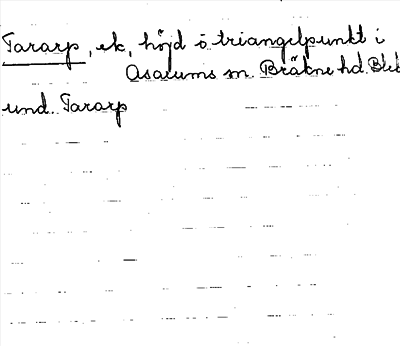 Tararp, ek, höjd o triangelpunkt i
Asarums sn. Bräkne hd. Blek
und. Tararp